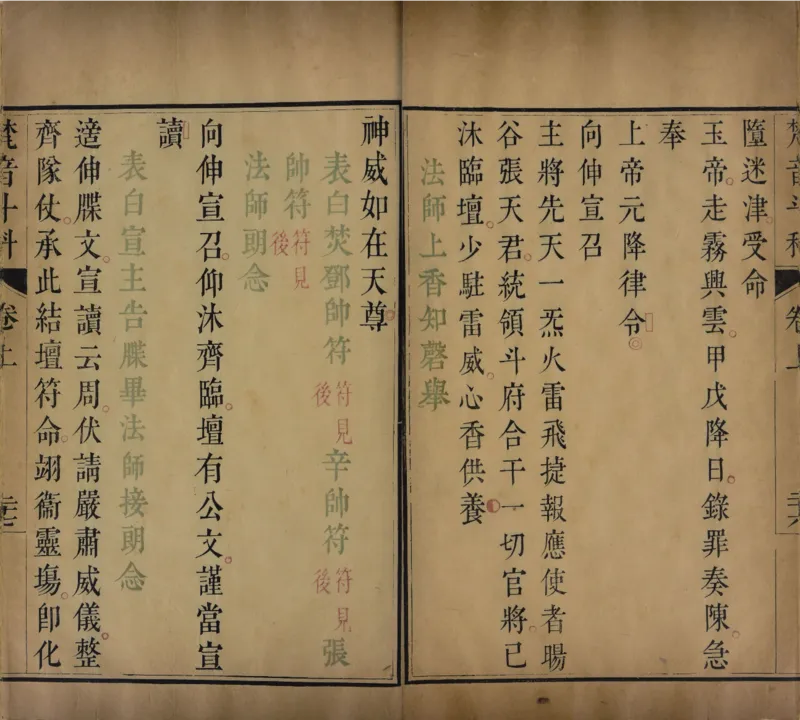 墮迷津受命
玉帝走霧興雲甲戊降日錄罪奏陳急
奉
上帝元降律令
向伸宣召
主將先天一炁火雷飛捷報應使者暘
谷張天君統領斗府合干一切官將已
沐臨壇少駐雷威心香供養
法師上香知磬舉
神威如在天尊
表白焚鄧帥符符見後辛帥符符見後張
帥符符見後
法師朗念
向伸宣召仰沐齊臨壇有公文謹當宣
讀
表白宣主告牒畢法師接朗念
適伸牒文宣讀云周伏請嚴肅威儀整
齊隊仗承此結壇符命翊衞靈塲卽化
梵音斗科
卷上